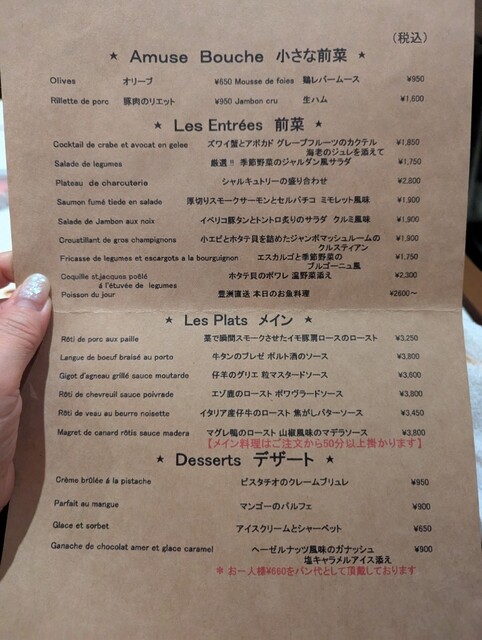 (税込)
★ Amuse Bouche 小さな前菜 ★
Olives オリーブ ¥650 Mousse de foies 鶏レバームース ¥950
Rillette de porc 豚肉のリエット ¥950 Jambon cru 生ハム ¥1,600
★ Les Entrées 前菜 ★
Cocktail de crabe et avocat en gelee ズワイ蟹とアボカド グレープフルーツのカクテル ¥1,850
海老のジュレを添えて
Salade de legumes 厳選!! 季節野菜のジャルダン風サラダ ¥1,750
Plateau de charcuterie シャルキュトリーの盛り合わせ ¥2,800
Saumon fumé tiede en salade 厚切りスモークサーモンとセルバチコ ミモレット風味 ¥1,900
Salade de Jambon aux noix イベリコ豚タンとトントロ炙りのサラダ クルミ風味 ¥1,900
Croustillant de gros champignons 小エビとホタテ貝を詰めたジャンボマッシュルームの ¥1,900
クルスティアン
Fricasse de legumes et escargots a la bourguignon エスカルゴと季節野菜の ¥1,750
ブルゴーニュ風
Coquille st.jacques poêlé ホタテ貝のポワレ 温野菜添え ¥2,300
à l'étuvée de legumes
Poisson du jour 豊洲直送 本日のお魚料理 ¥2600～
★ Les Plats メイン ★
Rôti de porc aux paille 藁で瞬間スモークさせたイモ豚肩ロースのロースト ¥3,250
Langue de boeuf braisé au porto 牛タンのブレゼ ポルト酒のソース ¥3,800
Gigot d'agneau grillé sauce moutarde 仔羊のグリエ 粒マスタードソース ¥3,600
Rôti de chevreuil sauce poivrade エゾ鹿のロースト ポワヴラードソース ¥3,800
Rôti de veau au beurre noisette イタリア産仔牛のロースト 焦がしバターソース ¥3,450
Magret de canard rôtis sauce madera マグレ鴨のロースト 山椒風味のマデラソース ¥3,800
【メイン料理はご注文から50分以上掛かります】
★ Desserts デザート ★
Crème brûlée à la pistache ピスタチオのクレームブリュレ ¥950
Parfait au mangue マンゴーのパルフェ ¥900
Glace et sorbet アイスクリームとシャーベット ¥650
Ganache de chocolat amer et glace caramel ヘーゼルナッツ風味のガナッシュ ¥900
塩キャラメルアイス添え
＊ お一人様¥660をパン代として頂戴しております